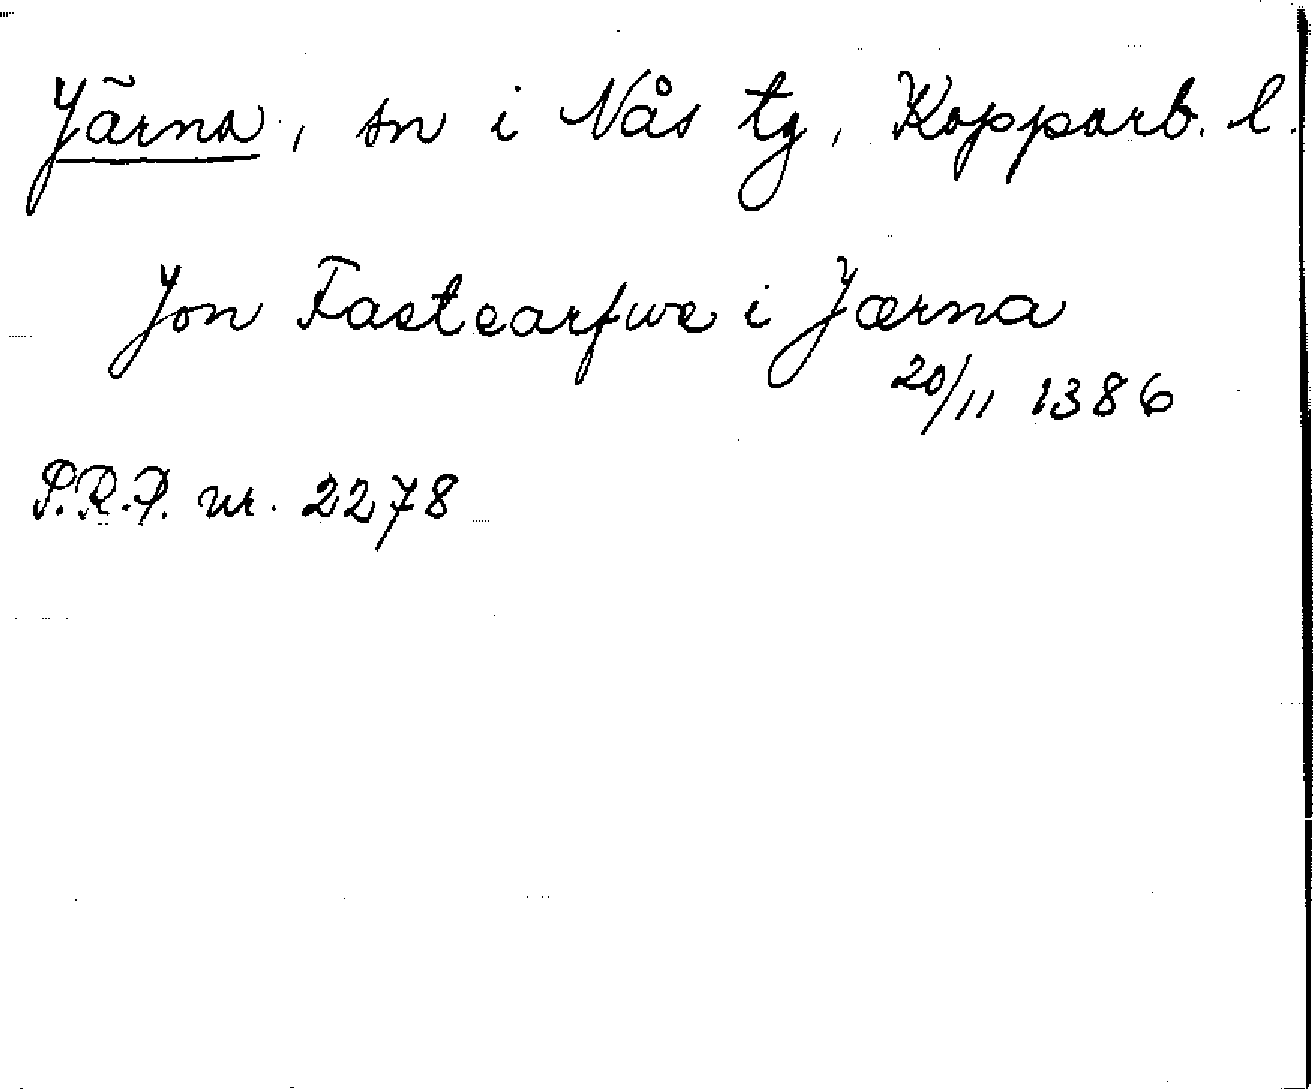 Järna, sn i Nås tg, Kopparb. l.
Jon Fastearfwe i Jærna
20/11 1386
S.R.P. nr. 2278